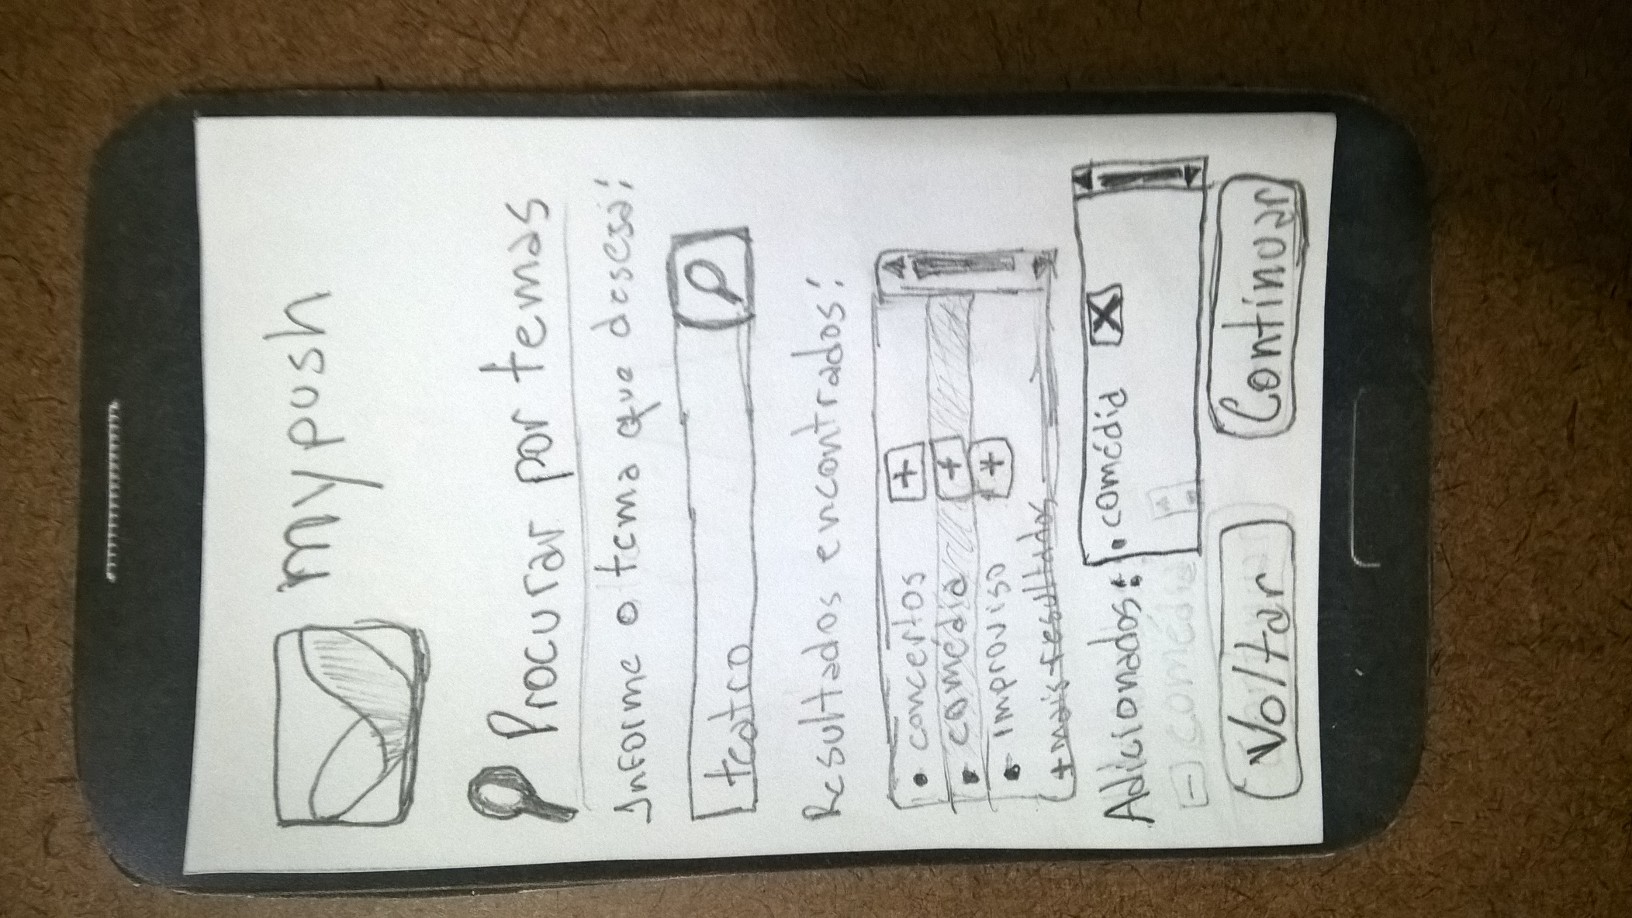 mypush
Procurar por temas
Informe o tema que deseja:
teatro
Resultados encontrados:
• concertos +
• comédia +
• improviso +
+ mais resultados
Adicionados: • comédia X
- comédia
Voltar Continuar